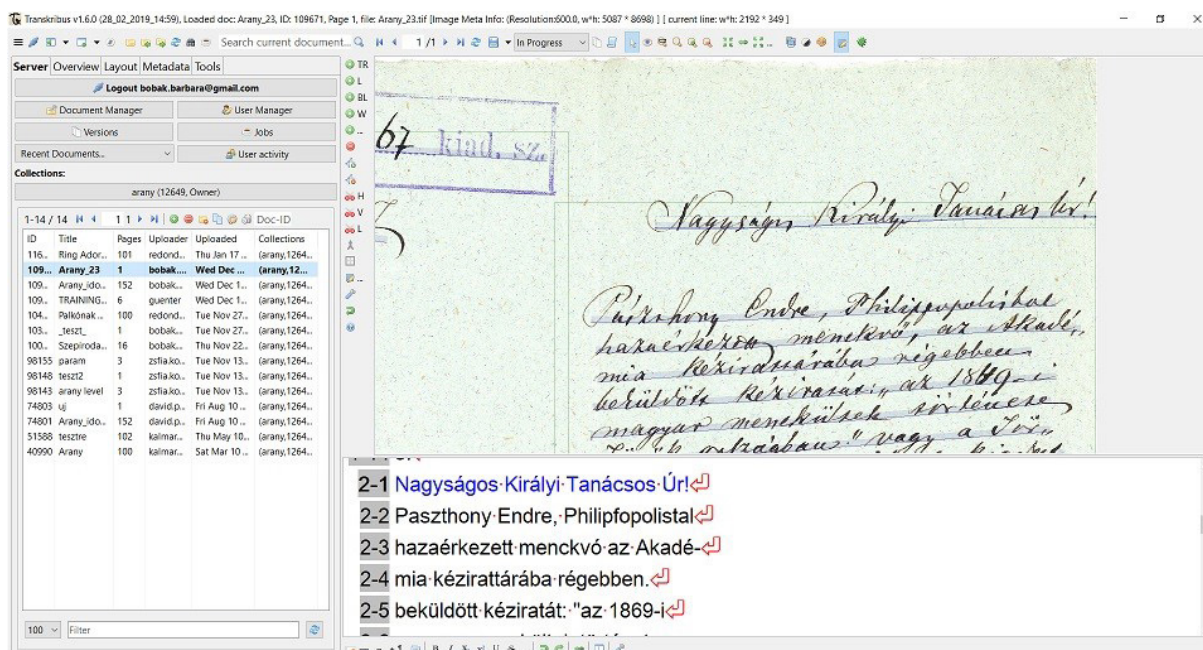 Transkribus v1.6.0 (28_02_2019_14:59), Loaded doc: Arany_23, ID: 109671, Page 1, file: Arany_23.tif [Image Meta Info: (Resolution:600.0, w*h: 5087 * 8698) ] [ current line: w*h: 2192 * 349 ]
Search current document...
1 /1
In Progress
Server Overview Layout Metadata Tools
Logout bobak.barbara@gmail.com
Document Manager
User Manager
Versions
Jobs
Recent Documents...
User activity
Collections:
arany (12649, Owner)
1-14 / 14
1 1
Doc-ID
ID Title Pages Uploader Uploaded Collections
116... Ring Ador... 101 redond... Thu Jan 17 ... (arany,1264...
109... Arany_23 1 bobak.... Wed Dec ... (arany,12...
109... Arany_ido... 152 bobak... Wed Dec 1... (arany,1264...
109... TRAINING... 6 guenter Wed Dec 1... (arany,1264...
104... Palkónak ... 100 redond... Tue Nov 27... (arany,1264...
103... _teszt_ 1 bobak... Tue Nov 27... (arany,1264...
100... Szepiroda... 16 bobak... Thu Nov 22... (arany,1264...
98155 param 3 zsfia.ko... Tue Nov 13... (arany,1264...
98148 teszt2 1 zsfia.ko... Tue Nov 13... (arany,1264...
98143 arany level 3 zsfia.ko... Tue Nov 13... (arany,1264...
74803 uj 1 david.p... Fri Aug 10 ... (arany,1264...
74801 Arany_ido... 152 david.p... Fri Aug 10 ... (arany,1264...
51588 tesztre 102 kalmar... Thu May 10... (arany,1264...
40990 Arany 100 kalmar... Sat Mar 10 ... (arany,1264...
100
Filter
TR
L
BL
W
...
H
V
L
...
67 kiad. sz.
Nagyságos Királyi Tanácsos Úr!
Endre, Philippopolisbol
hazaérkezett menekvő, az Akadé,
mia kézirattárába régebben
beküldött kéziratát: „az 1849-i
magyar menekültek története
vagy a Tör„
2-1 Nagyságos Királyi Tanácsos Úr!
2-2 Paszthony Endre, Philipfopolistal
2-3 hazaérkezett menckvó az Akadé-
2-4 mia kézirattárába régebben.
2-5 beküldött kéziratát: "az 1869-i